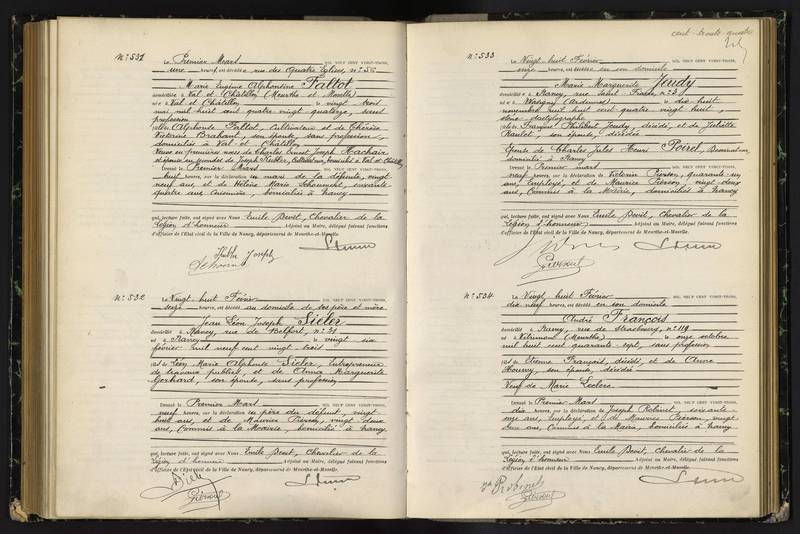 N° 531
Le Premier Mars MIL NEUF CENT VINGT-TROIS,
une heures, est décédée rue des Quatre Eglises, n° 55
Marie Eugénie Alphontine Faltot
domiciliée à Val et Châtillon (Meurthe et Moselle)
née à Val et Châtillon le vingt trois
mai mil huit cent quatre vingt quatorze, sans
profession
fille de Alphonse Faltot, Cultivateur et de Thérèse
Victorine Brachani, son épouse, sans profession
domiciliés à Val et Châtillon
Veuve en premières noces de Charles Ernest Joseph Machair
et épouse en secondes de Joseph, domicilié à Val et Châtillon
Dressé le Premier Mars
huit heures, sur la déclaration du mari de la défunte, vingt
neuf ans, et de Hélène Marie, cinquante
quatre ans, domiciliés à Nancy
qui, lecture faite, ont signé avec Nous Emile Devit, Chevalier de la
Légion d'honneur Adjoint au Maire, délégué faisant fonctions
d'officier de l'Etat civil de la Ville de Nancy, département de Meurthe-et-Moselle.
Joseph
N° 532
Le Vingt huit Février MIL NEUF CENT VINGT-TROIS,
seize heures, est décédé au domicile de ses père et mère
Jean Léon Joseph Sieler
domicilié à Nancy, rue de Belfort, n° 31
né à Nancy le vingt six
février mil neuf cent vingt trois
fils de Léon Marie Alphonse Sieler, Entrepreneur
de travaux publics, et de Anna Marguerite
Gerhard, son épouse, sans profession
Dressé le Premier Mars
neuf heures, sur la déclaration du père du défunt, vingt
huit ans, et de Maurice Pierson, vingt deux
ans, Commis à la Mairie, domiciliés à Nancy
qui, lecture faite, ont signé avec Nous Emile Devit, Chevalier de la
Légion d'honneur Adjoint au Maire, délégué faisant fonctions
d'officier de l'Etat civil de la Ville de Nancy, département de Meurthe-et-Moselle.
cent trente quatre
N° 533
Le Vingt huit Février MIL NEUF CENT VINGT-TROIS,
onze heures, est décédée en son domicile
Marie Marguerite Jeudy
domiciliée à Nancy, rue Saint
née à Wasigny (Ardennes) le dix huit
novembre mil huit cent quatre vingt huit,
sténo-dactylographe
fille de François Philibert Jeudy, décédé, et de Juliette
Maulet, son épouse, décédée
Epouse de Charles Jules Henri Poirel,
domicilié à Nancy
Dressé le Premier mars
neuf heures, sur la déclaration de Victorin Pierson, quarante un
ans, Employé, et de Maurice Pierson, vingt deux
ans, Commis à la Mairie, domiciliés à Nancy
qui, lecture faite, ont signé avec Nous Emile Devit, Chevalier de la
Légion d'honneur Adjoint au Maire, délégué faisant fonctions
d'officier de l'Etat civil de la Ville de Nancy, département de Meurthe-et-Moselle.
N° 534
Le Vingt huit Février MIL NEUF CENT VINGT-TROIS,
dix neuf heures, est décédé en son domicile
André François
domicilié à Nancy, rue de Strasbourg, n° 119
né à Vitrimont (Meurthe) le onze octobre
mil huit cent quarante sept, sans profession
fils de Etienne François, décédé, et de Anne
son épouse, décédée
Veuf de Marie Leclerc
Dressé le Premier Mars
dix heures, sur la déclaration de Joseph Robinet, soixante
onze ans, Employé, et de Maurice Pierson, vingt
deux ans, Commis à la Mairie, domiciliés à Nancy
qui, lecture faite, ont signé avec Nous Emile Devit, Chevalier de la
Légion d'honneur Adjoint au Maire, délégué faisant fonctions
d'officier de l'Etat civil de la Ville de Nancy, département de Meurthe-et-Moselle.
Robinet